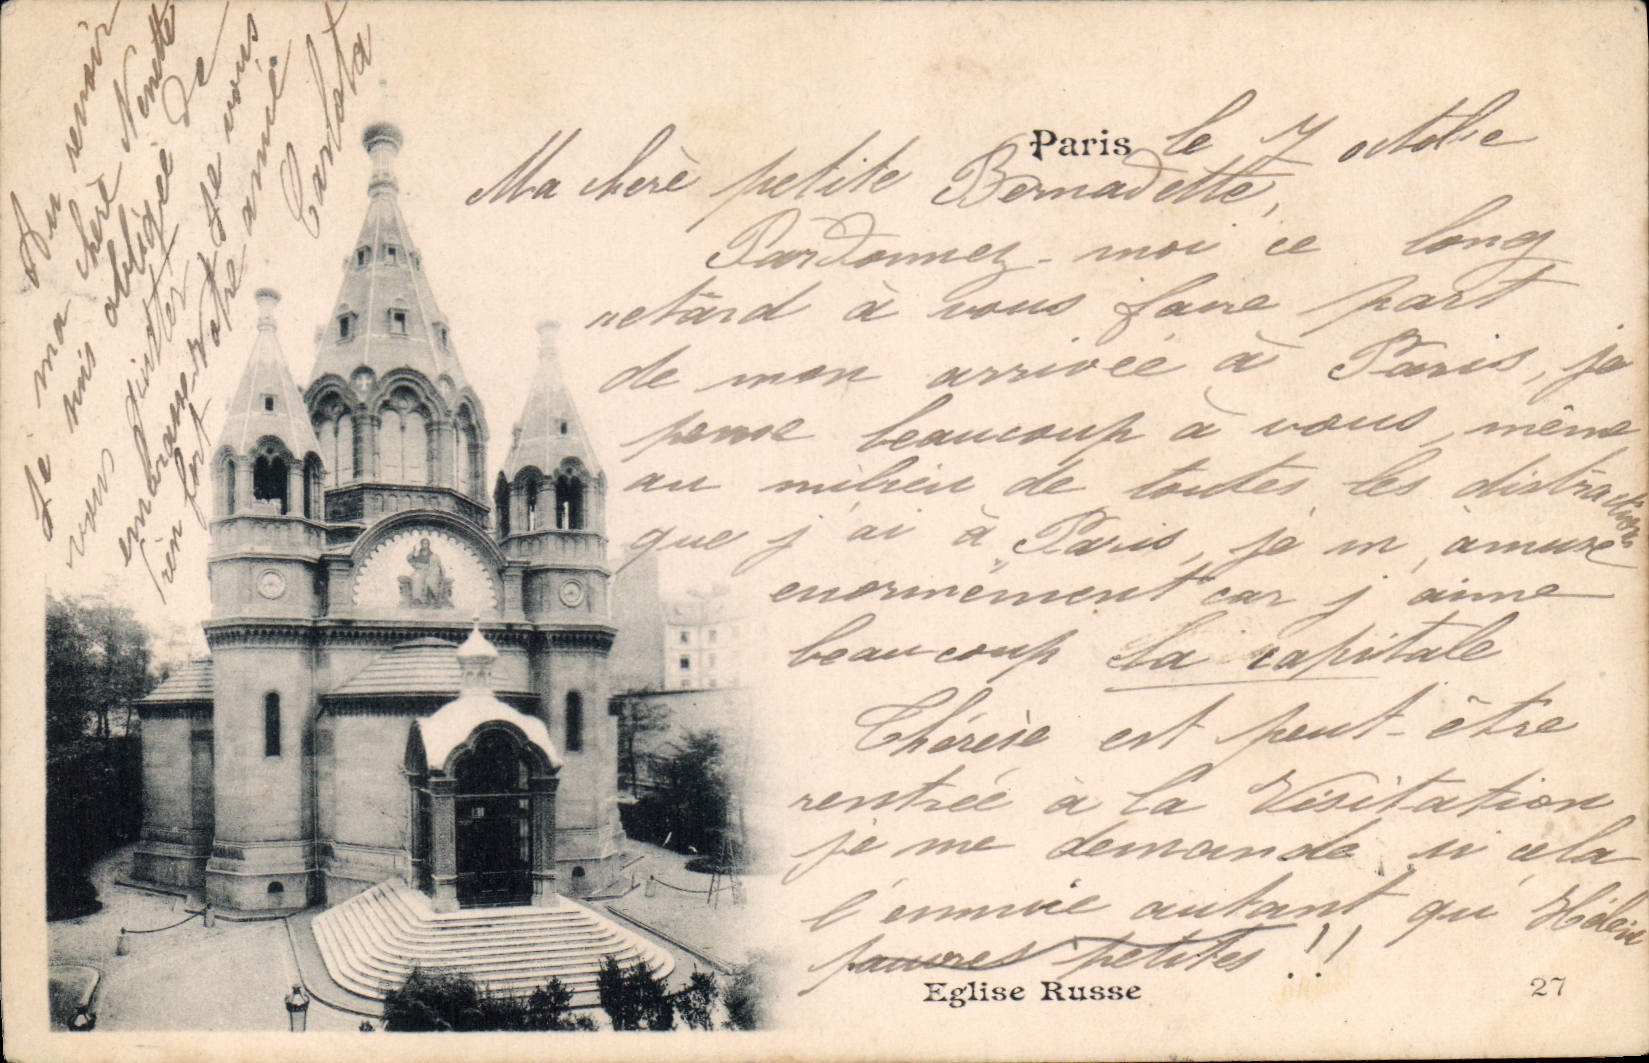 Paris le 7 octobre
Ma chère petite Bernadette,
Pardonnez-moi ce long
retard à vous faire part
de mon arrivée à Paris, je
pense beaucoup à vous, même
au milieu de toutes les distractions
que j'ai à Paris, je m'amuse
enormément car j'aime
beaucoup la capitale
Thérèse est peut-être
rentrée à la Visitation
je me demande si cela
l'ennuie autant qu'Hélène
pauvres petites!!
Au revoir
ma chère Nenette
Je suis obligée de
vous quitter Je vous
embrasse Votre amie
bien fort Carlota
Eglise Russe
27